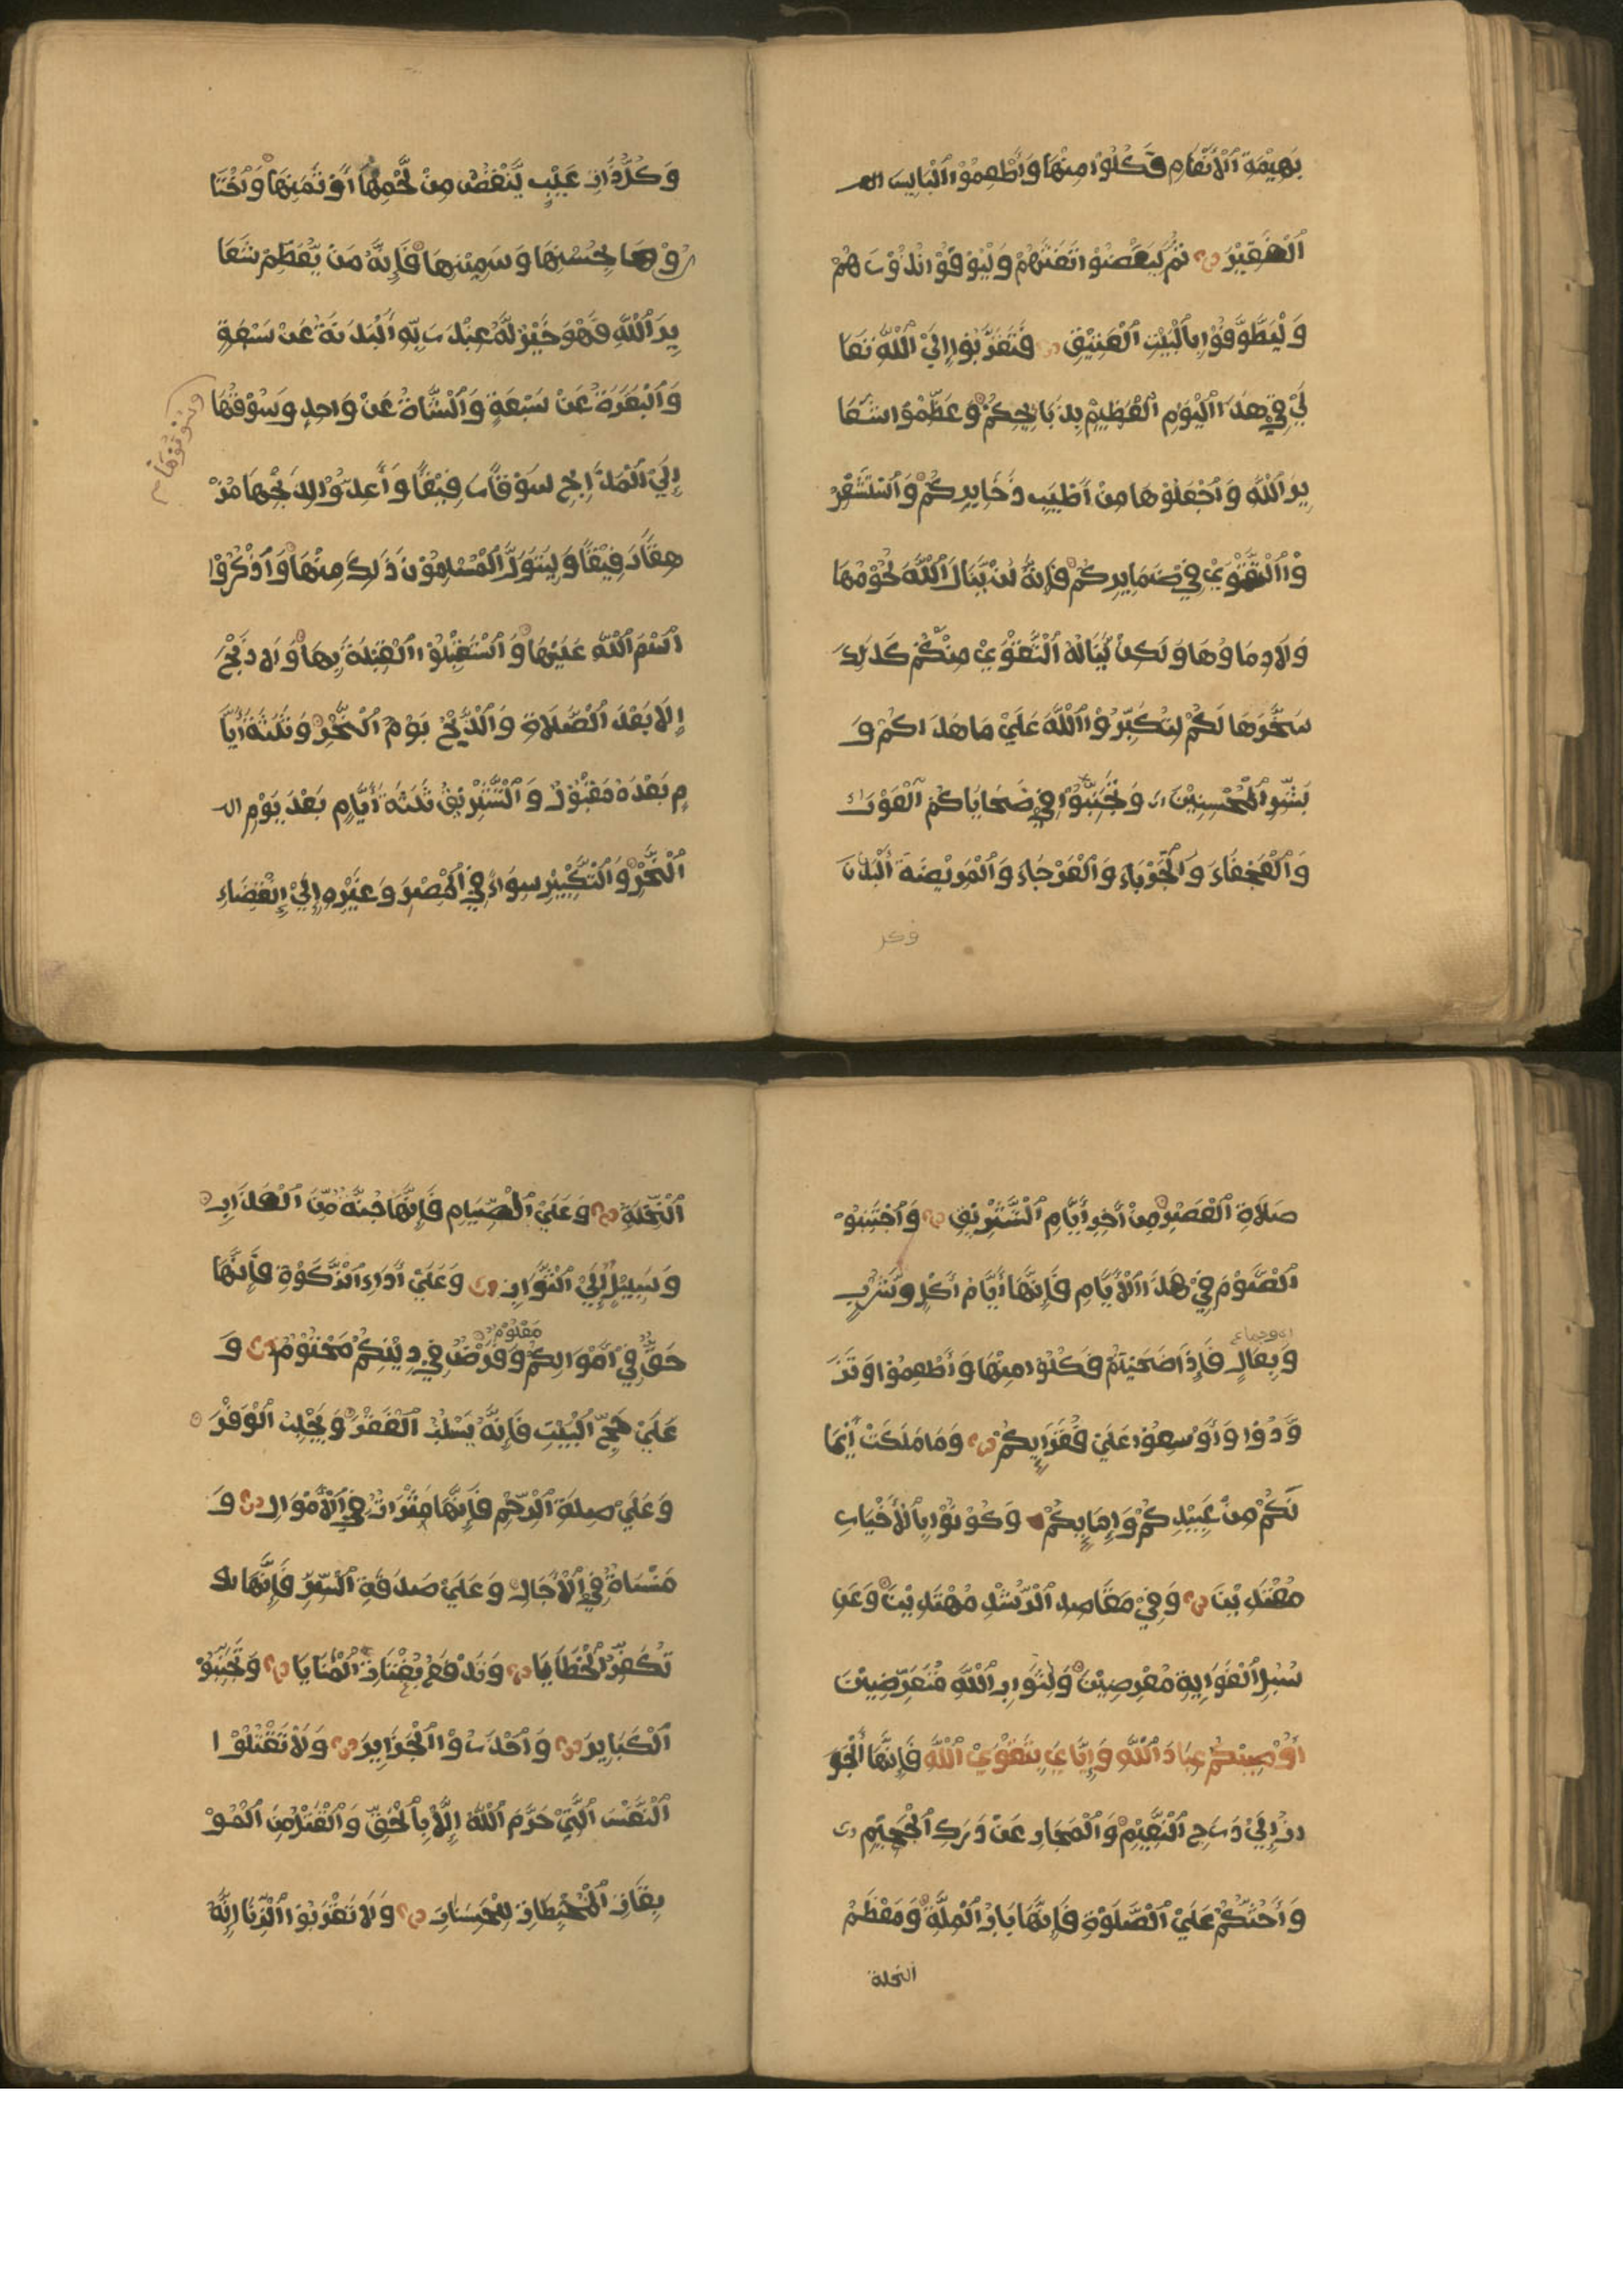 بَهِيْمَةِ اَلْأَنْعَامِ فَكُلُوْا مِنْهَا وَأَطْعِمُوْا اَلْبَايِسَ الف
اَلْفَقِيْرَ ثُمَّ لْيَقْضُوْا تَفَثَهُمْ وَلْيُوْفُوْا نُذُوْرَهُمْ
وَلْيَطَّوَّفُوْا بِالْبَيْتِ اَلْعَتِيْقِ فَتَقَرَّبُوْا إِلَيْ اَللَّهِ تَعَا
لَيْ فِيْ هَذَا اَلْيَوْمِ اَلْعَظِيْمِ بِذَبَايِحِكُمْ وَعَظِّمُوْا شَعَا
يِرَ اَللَّهِ وَاجْعَلُوْهَا مِنْ أَطْيَبِ ذَخَايِرِكُمْ وَاَسْتَشْعِرُ
وْا اَلتَّقْوَيْ فِيْ ضَمَايِرِكُمْ فَإِنَّهُ لَنْ يَّنَالَ اَللَّهَ لُحُوْمُهَا
وَلَا دِمَاوُهَا وَلَكِنْ يَّنَالُهُ اَلتَّقْوَيْ مِنْكُمْ كَذَلِكَ
سَخَّرَهَا لَكُمْ لِتُكَبِّرُوْا اَللَّهَ عَلَيْ مَا هَدَاكُمْ وَ
بَشِّرِ اَلْمُحْسِنِيْنَ وَتَجَنَّبُوْا فِيْ ضَحَايَاكُمْ اَلْعَوْرَاءَ
وَالْعَجْفَاءَ وَالْجَرْبَاءَ وَالْعَرْجَاءَ وَالْمَرِيْضَةَ اَلْبَدَنَ
وكل
وَكُلَّ ذَاتِ عَيْبٍ يَّنْقُصُ مِنْ لَّحْمِهَا أَوْ ثَمَنِهَا وَاخْتَا
رُوْهَا بِحُسْنِهَا وَسَمِيْنِهَا فَإِنَّهُ مَنْ يُّعَظِّمْ شَعَا
يِرَ اَللَّهِ فَهُوَ خَيْرٌ لَّهُ عِنْدَ رَبِّهِ اَلْبَدَنَةُ عَنْ سَبْعَةٍ
وَالْبَقَرَةُ عَنْ سَبْعَةٍ وَالشَّاةُ عَنْ وَاحِدٍ وَسُوْقُهَا
إِلَيْ اَلْمَذَابِحِ سَوْقًا رَفِيْقًا وَأَعِدُّوْا لِذَبْحِهَا مُرْ
هِفًا دَقِيْقًا وَلْيَتَوَلَّ اَلْمُسْلِمُوْنَ ذَلِكَ مِنْهَا وَاذْكُرُوْا
اَسْمَ اَللَّهِ عَلَيْهَا وَاسْتَقْبِلُوْا اَلْقِبْلَةَ بِهَا وَلَا ذَبْحَ
إِلَّا بَعْدَ اَلصَّلَاةِ وَالذَّبْحُ يَوْمَ اَلنَّحْرِ وَثَلَثَةَ أَيَّا
مٍ بَعْدَهُ مَقْبُوْلٌ وَالتَّشْرِيْقُ ثَلَثَةُ أَيَّامٍ بَعْدَ يَوْمِ ال
اَلنَّحْرِ وَالتَّكْبِيْرِ سَوَاءٌ فِيْ اَلْمِصْرِ وَغَيْرِهِ إِلَيْ اِنْقِضَاءِ
صَلَاةِ اَلْعَصْرِ مِنْ أَخِرِ أَيَّامِ اَلتَّشْرِيْقِ وَاجْتَنِبُوْ
اَلصَّوْمَ فِيْ هَذَا اَلْأَيَّامِ فَإِنَّهَا أَيَّامُ أَكْلٍ وَّشُرْبٍ
اى وجماع
وَبِعَالٍ فَإِذَا ضَحَيْتُمْ فَكُلُوْا مِنْهَا وَأَطْعِمُوْا وَتَزَ
وَّدُوْا وَأَوْسِعُوْا عَلَيْ فُقَرَايِكُمْ وَمَا مَلَكَتْ أَيْمَا
نُكُمْ مِنْ عَبِيْدِكُمْ وَإِمَايِكُمْ وَكُوْنُوْا بِالْأَخْيَارِ
مُقْتَدِيْنَ وَفِيْ مَقَاصِدِ اَلرُّشْدِ مُهْتَدِيْنَ وَعَنْ
سُبُلِ اَلْغَوَايِةِ مُعْرِضِيْنَ وَلِثَوَابِ اَللَّهِ مُتَعَرِّضِيْنَ
أُوْصِيْكُمْ عِبَادَ اَللَّهِ وَإِيَّايَ بِتَقْوَيْ اَللَّهِ فَإِنَّهَا اَلْجَوَ
ازُ إِلَيْ دَرَجِ اَلنَّعِيْمِ وَالْمَجَازِ عَنْ دَرَكِ اَلْجَحِيْمِ
وَأَحُثُّكُمْ عَلَيْ اَلصَّلَوْةِ فَإِنَّهَا بَابُ اَلْمِلَّةِ وَمَعْظَمُ
النحلة
اَلنِّحْلَةِ وَعَلَيْ اَلصِّيَامِ فَإِنَّهَا جُنَّةٌ مِّنَ اَلْعَذَابِ
وَسَبِيْلٌ إِلَيْ اَلثَّوَابِ وَعَلَيْ أَدَاءِ اَلزَّكَوْةِ فَإِنَّهَا
مَعْلُوْمٌ
حَقٌّ فِيْ أَمْوَالِكُمْ وَفَرْضٌ فِيْ دِيْنِكُمْ مَحْتُوْمٌ وَ
عَلَيْ حَجِّ اَلْبَيْتِ فَإِنَّهُ يَسْلُبُ اَلْفَقْرَ وَيَجْلِبُ اَلْوَفْرَ
وَعَلَيْ صِلَةِ اَلرَّحِمِ فَإِنَّهَا مَثْرَاتٌ فِيْ اَلْأَمْوَالِ وَ
مَنْسَاةٌ فِيْ اَلْأَجَالِ وَعَلَيْ صَدَقَةِ اَلسِّرِّ فَإِنَّهَا
تُكَفِّرُ اَلْخَطَايَا وَتَدْفَعُ بَغْتَاتَ اَلْمَنَايَا وَتَجَنَّبُوْ
اَلْكَبَايِرَ وَاحْذَرُوْا اَلْجَرَايِرَ وَلَا تَقْتُلُوْا
اَلنَّفْسَ اَلَّتِيْ حَرَّمَ اَللَّهُ إِلَّا بِالْحَقِّ وَالْقَتْلُ مِنَ اَلْمُوْ
بِقَاتِ اَلْمُحْبِطَاتِ لِلْحَسَنَاتِ وَلَا تَقْرَبُوْا اَلزِّنَا إِنَّهُ